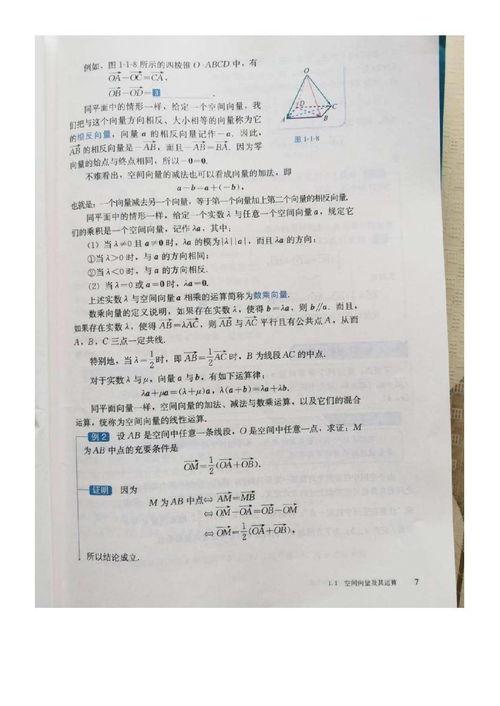 例如，图1-1-8所示的四棱锥O-ABCD中，有
OA-OC=CA，
OB-OD=3
同平面中的情形一样，给定一个空间向量，我
们把与这个向量方向相反、大小相等的向量称为它
的相反向量，向量a的相反向量记作-a. 因此，
AB的相反向量是-AB，而且-AB=BA. 因为零
向量的始点与终点相同，所以-0=0.
O
D
C
A
B
图1-1-8
不难看出，空间向量的减法也可以看成向量的加法，即
a-b=a+(-b)，
也就是：一个向量减去另一个向量，等于第一个向量加上第二个向量的相反向量.
同平面中的情形一样，给定一个实数λ与任意一个空间向量a，规定它
们的乘积是一个空间向量，记作λa，其中：
(1) 当λ≠0且a≠0时，λa的模为|λ||a|，而且λa的方向：
①当λ>0时，与a的方向相同；
②当λ<0时，与a的方向相反.
(2) 当λ=0或a=0时，λa=0.
上述实数λ与空间向量a相乘的运算简称为数乘向量.
数乘向量的定义说明，如果存在实数λ，使得b=λa，则b∥a. 而且，
如果存在实数λ，使得AB=λAC，则AB与AC平行且有公共点A，从而
A，B，C三点一定共线.
特别地，当λ=1/2时，即AB=1/2AC时，B为线段AC的中点.
对于实数λ与μ，向量a与b，有如下运算律：
λa+μa=(λ+μ)a，λ(a+b)=λa+λb.
同平面向量一样，空间向量的加法、减法与数乘运算，以及它们的混合
运算，统称为空间向量的线性运算.
例2 设AB是空间中任意一条线段，O是空间中任意一点，求证：M
为AB中点的充要条件是
OM=1/2(OA+OB).
证明 因为
M为AB中点⇔AM=MB
⇔OM-OA=OB-OM
⇔OM=1/2(OA+OB)，
所以结论成立.
1.1 空间向量及其运算 7